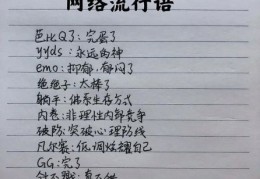 网络流行语
芭比Q了：完蛋了
yyds：永远的神
emo：抑郁，郁闷了
绝绝子：太棒了
躺平：佛系生存方式
内卷：非理性内部竞争
破防：突破心理防线
凡尔赛：低调炫耀自己
GG：完了